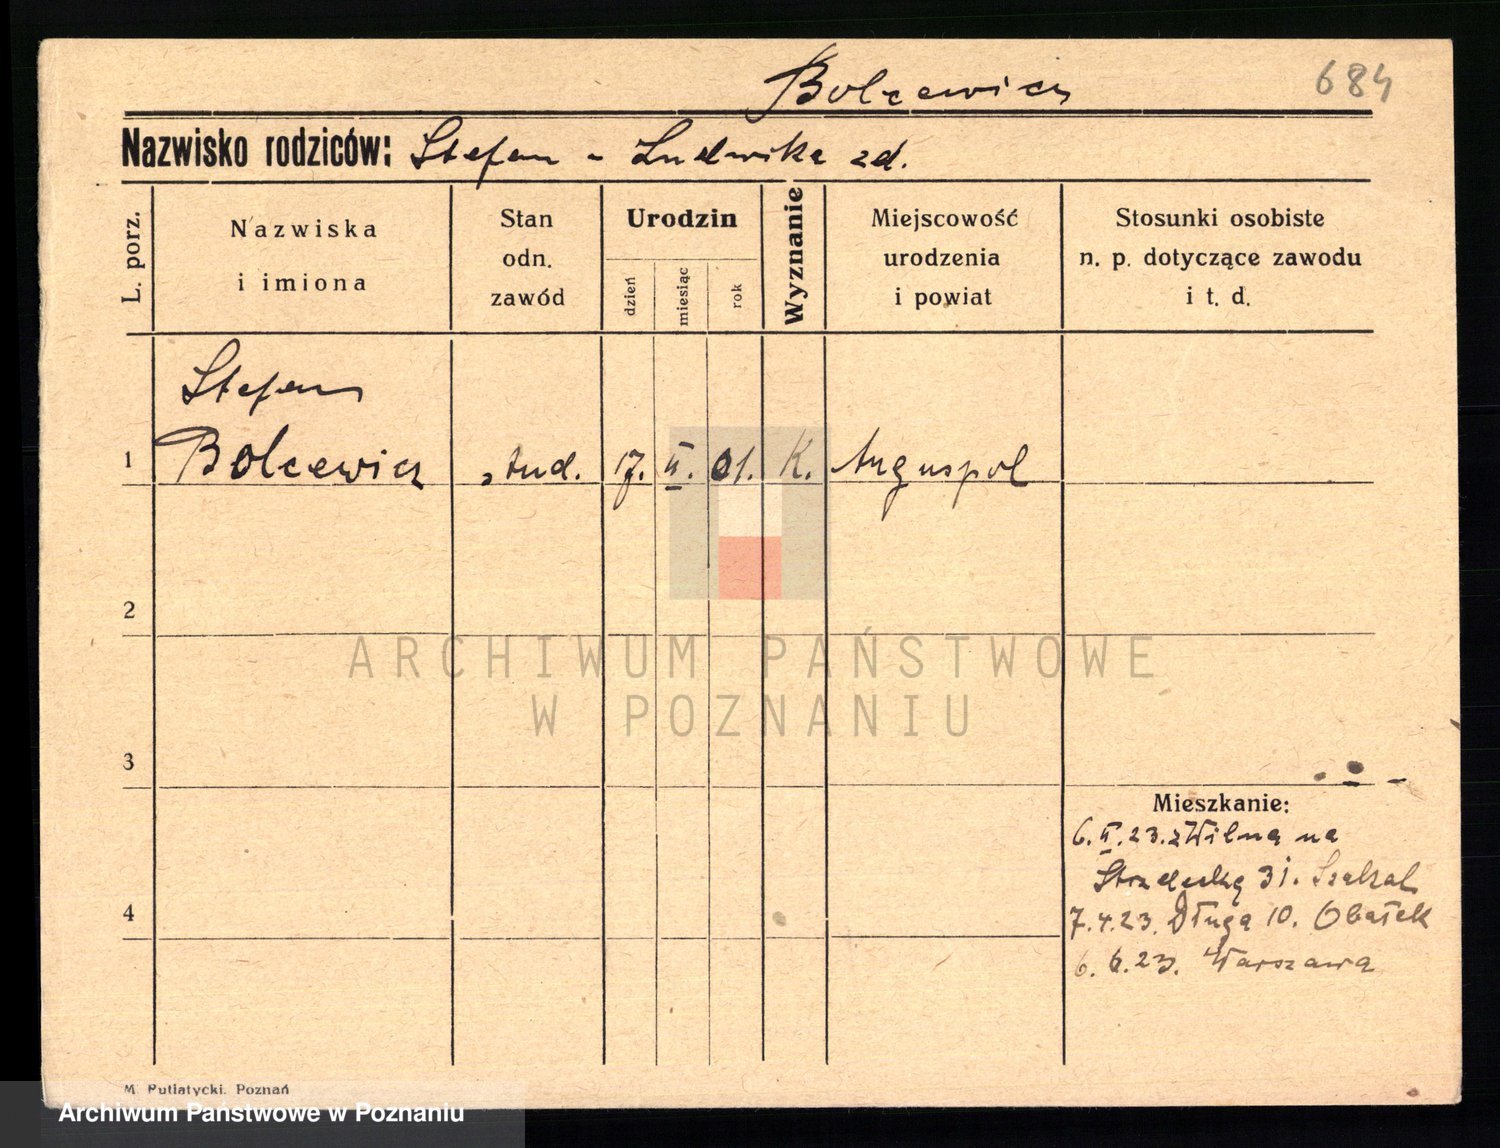 Bolcewicz 684
Nazwisko rodziców: Stefan - Ludwika zd.
L. porz.
Nazwiska
i imiona
Stan
odn.
zawód
Urodzin
dzień
miesiąc
rok
Wyznanie
Miejscowość
urodzenia
i powiat
Stosunki osobiste
n. p. dotyczące zawodu
i t. d.
Stefan
1 Bolcewicz stud. 17. II. 01. K. Auguspol
2
ARCHIWUM PAŃSTWOWE
W POZNANIU
3
Mieszkanie:
6. II. 23. z Wilna na
31.
4
7.4.23. Długa 10. Obałek
6. 6. 23. Warszawa
M. Putiatycki. Poznań
Archiwum Państwowe w Poznaniu